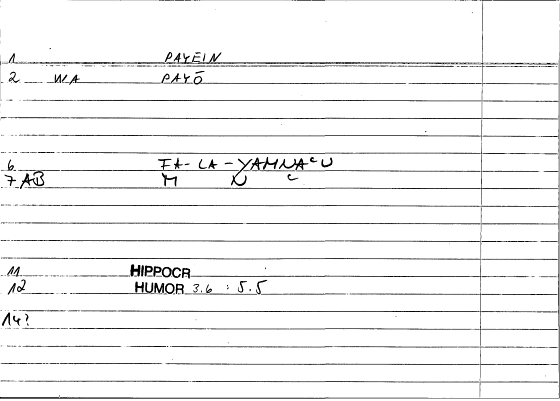 1 PAYEIN
2 WA PAYŌ
6. FA-LA-YAMNAᶜU
7 AB M N c
11 HIPPOCR
12 HUMOR 3.6 : 5.5
14?